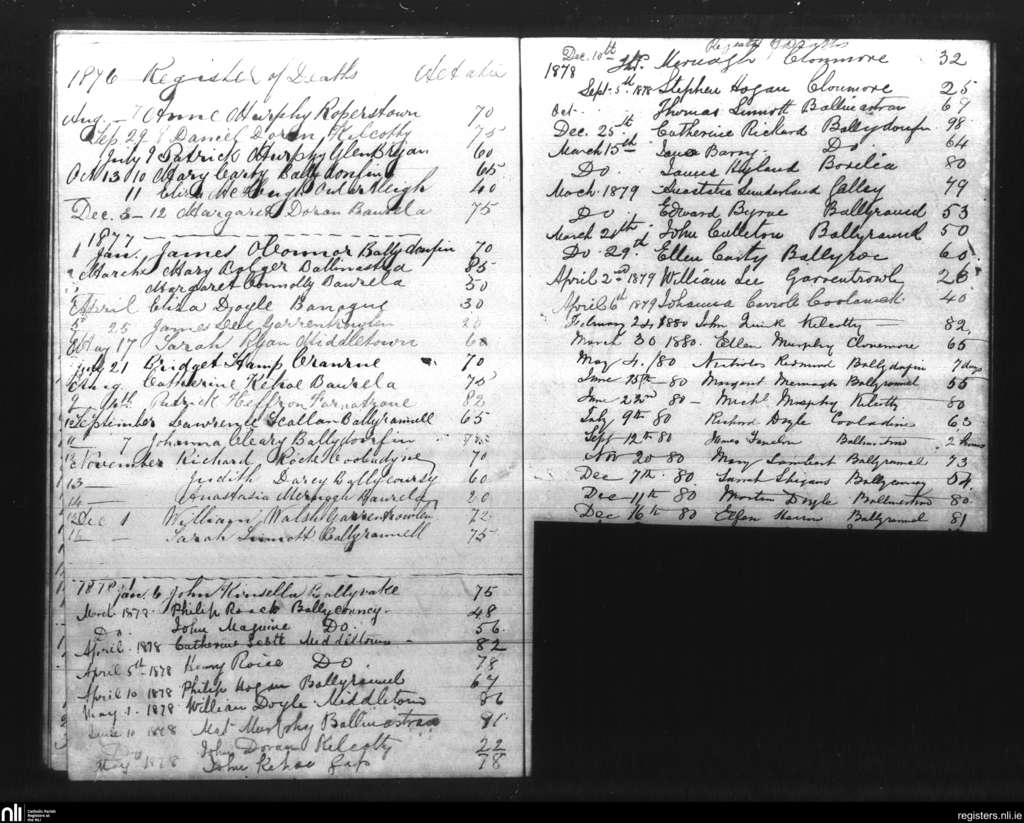 1876 Register of Deaths Aetatis
Aug. - 7 Anne Murphy Roperstown 70
Sep 29 8 Daniel Doran Kilcotty 75
July 9 Patrick Murphy Glen Bryan 60
Oct 13 10 Mary Carty Ballydonfin 65
11 Eliza 40
Dec. 5 - 12 Margaret Doran Baurela 75
1877
1 Jan. James O'Connor Ballydonfin 70
March Mary Bolger Ballinastra 85
Margaret Connolly Baurela 50
April Eliza Doyle Banogue 30
25 James Lee Garrentrowlen
May 17 Sarah Ryan Middletown 60
July 21 Bridget Hamp Cranrue 70
Aug. Catherine Kehoe Baurela 75
Patrick Heffron 82
September Lawrence Scallan Ballyramnell 65
" 7 Johanna Cleary Ballydonfin
November Richard Roche Cooladyne 70
13 - Judith Darcy Ballycoursy 60
14 - Anastasia Baurela 20
Dec 1 William Walsh Garrentrowlen 72
- Sarah Sinnott Ballyramnell 75
1878 Jan. 6 John Kinsella Ballyvake 75
March 1878 Philip Ballyconney 48
Do. John Maguire Do. 56
April. 1878 Catherine Scott Middletown 82
April 5th 1878 Henry Roice Do. 78
April 10 1878 Philip Hogan Ballyramel 67
May 1. 1878 William Doyle Middletown 86
June 10 1878 Mat Murphy Ballinastraa 81
Do John Doran Kilcotty 22
May 1878 John Kehoe Gap 78
Dec. 10th
1878 Clonmore 32
Sept. 5th 1878 Stephen Hogan Clonmore 25
Oct. Thomas Sinnott Ballinastraw 69
Dec. 25th Catherine Richard Ballydonfin 98
March 15th Barry Do 64
Do. James Hyland Borilia 80
March 1879 Anastatia Sunderland 79
Do Edward Byrne Ballyramel 53
March 28th John Culleton Ballyramel 50
Do. 29th Ellen Carty Ballyroe 60
April 2nd 1879 William Lee Garrentrowly 26
April 6th 1879 Johanna Carroll 40
February 24 1880 John Quirk Kilcotty 82
March 30 1880. Ellen Murphy Clonemore 65
May 4. /80 Nicholas Redmond Ballydonfin 7 days
June 15th - 80 Margaret Ballyramel 55
June 22nd 80 - Michl Murphy Kilcotty 80
July 9th 80 Richard Doyle Cooladine 63
Sept 12th 80 James Ballinastraw 2 hours
Nov 20 80 Mary Lambert Ballyramel 73
Dec 7th. 80 Sarah 54
Dec 11th 80 Morton Doyle Ballinastraw 80
Dec 16th 80 Ellen Ballyramel 81
nli Catholic Parish Registers at the NLI
registers.nli.ie